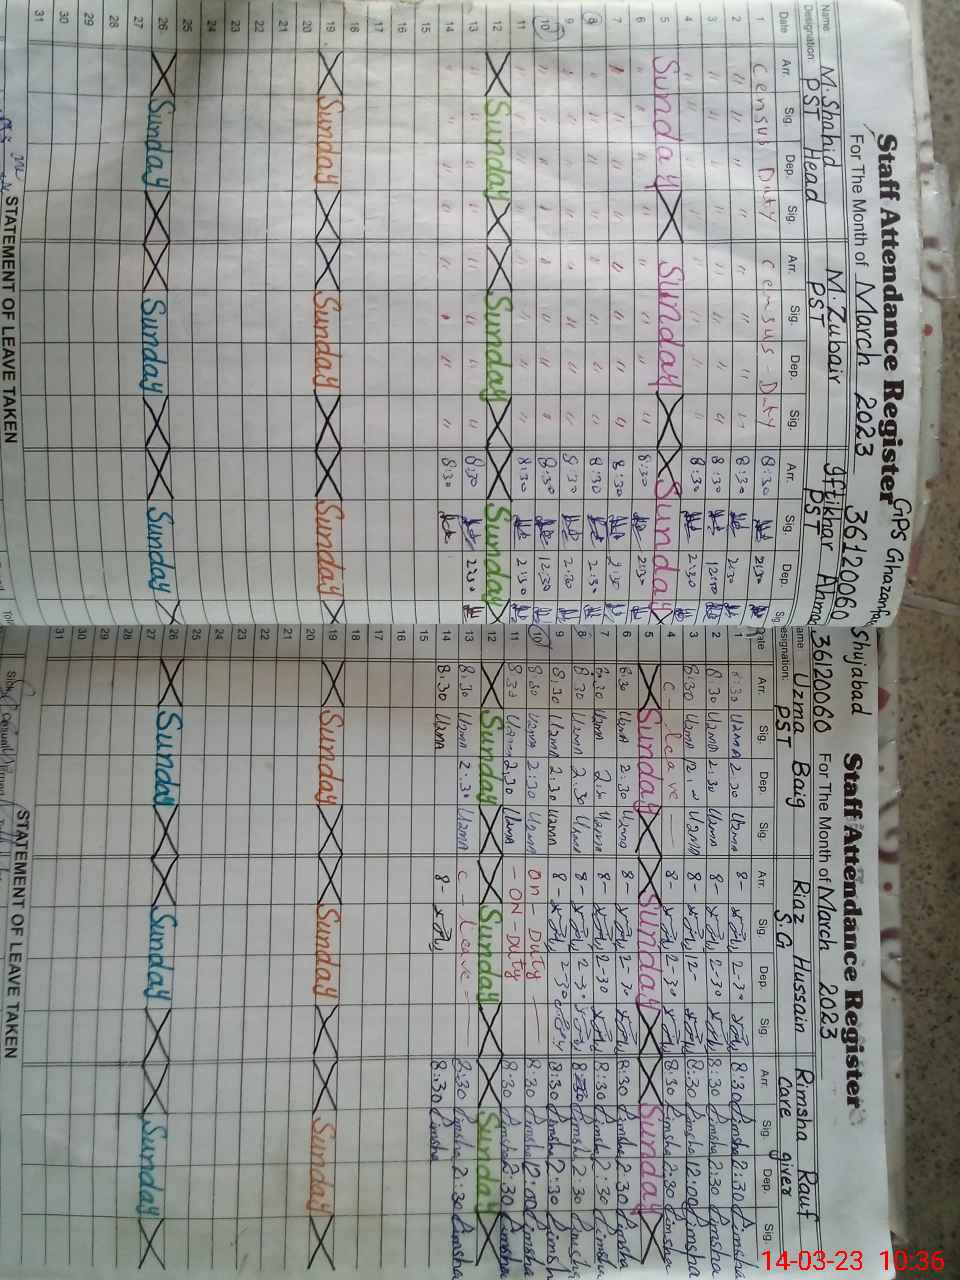 Staff Attendance Register GPS Ghazanfar
For The Month of March 2023 36120060
Name: M. Shahid M. Zubair Iftikhar Ahmad
Designation: PST Head PST PST
Date Arr. Sig. Dep. Sig. Arr. Sig. Dep. Sig. Arr. Sig. Dep. Sig.
1 Census Duty Census - Duty 8:30 2:30
2 " " " " " " " " 8:30 2:30
3 " " " " " " " " 8:30 12:00
4 " " " " " " " " 8:30 2:30
5 Sunday Sunday Sunday
6 " " " " " " " " 8:30 2:30
7 " " " " " " " " 8:30 2:30
8 " " " " " " " " 8:30 2:30
9 " " " " " " " " 8:30 2:30
10 " " " " " " " " 8:30 12:30
11 " " " " " " " " 8:30 2:30
12 Sunday Sunday Sunday
13 " " " " " " " " 8:30 2:30
14 " " " " " " " " 8:30
15
16
17
18
19 Sunday Sunday Sunday
20
21
22
23
24
25
26 Sunday Sunday Sunday
27
28
29
30
31
STATEMENT OF LEAVE TAKEN
Shujabad Staff Attendance Register
36120060 For The Month of March 2023
Name Uzma Baig Riaz Hussain Rimsha Rauf
Designation: PST S.G Care giver
Date Arr. Sig. Dep. Sig. Arr. Sig. Dep. Sig. Arr. Sig. Dep. Sig.
1 8:30 UzmA 2:30 UzmA 8- 2-30 8:30 Rimsha 2:30 Rimsha
2 8:30 UzmA 2:30 UzmA 8- 2-30 8:30 Rimsha 2:30 Rimsha
3 8:30 UzmA UzmA 8- 12- 8:30 Rimsha 12:00 Rimsha
4 C - leave 8- 2-30 8:30 Rimsha 2:30 Rimsha
5 Sunday Sunday Sunday
6 8:30 UzmA 2:30 Uzma 8- 2-30 8:30 Rimsha 2:30 Rimsha
7 8:30 UzmA UzmA 8- 2-30 8:30 Rimsha 2:30 Rimsha
8 8:30 UzmA 2:30 UzmA 8- 2-30 Rimsha 2:30 Rimsha
9 8:30 UzmA 2:30 UzmA 8- 2-30 8:30 Rimsha 2:30 Rimsha
10 8:30 UzmA 2:30 UzmA On - Duty 8:30 Rimsha 12:00 Rimsha
11 8:30 Uzma 2:30 UzmA - ON - DUTY 8:30 Rimsha 2:30 Rimsha
12 Sunday Sunday Sunday
13 8:30 UzmA 2:30 UzmA C - Leave 8:30 Rimsha 2:30 Rimsha
14 8:30 UzmA 8- 8:30 Rimsha
15
16
17
18
19 Sunday Sunday Sunday
20
21
22
23
24
25
26 Sunday Sunday Sunday
27
28
29
30
31
STATEMENT OF LEAVE TAKEN
14-03-23 10:36